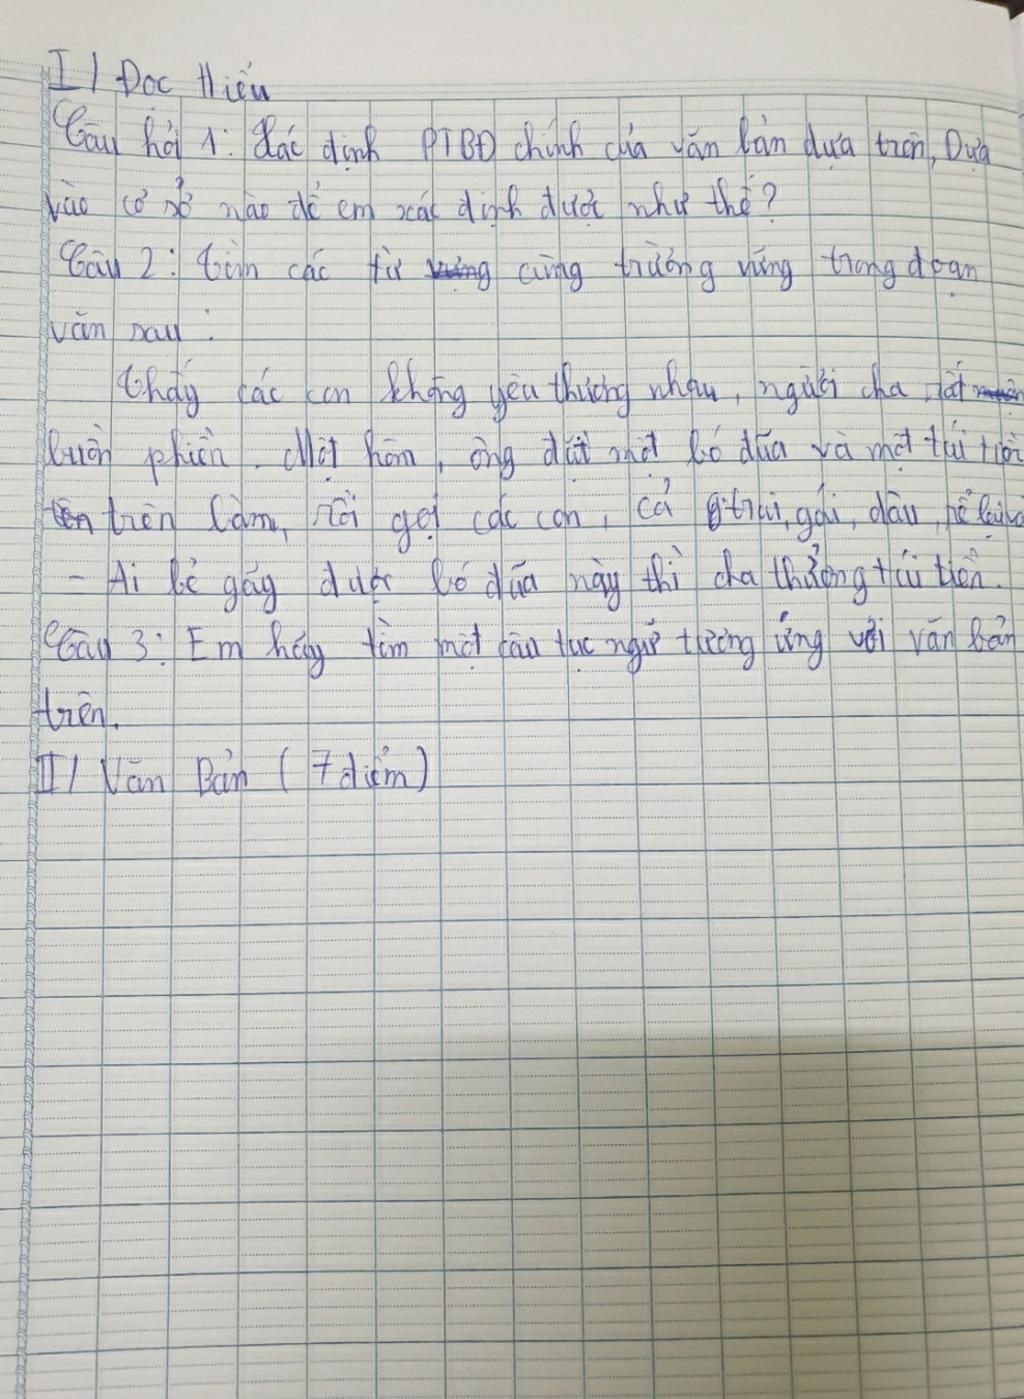 I/ Đọc Hiểu
Câu hỏi 1: Xác định PTBĐ chính của văn bản dựa trên, Dựa
vào cơ sở nào để em xác định được như thế?
Câu 2: tìm các từ cùng trường vựng trong đoạn
văn sau:
Thấy các con không yêu thương nhau, người cha rất
buồn phiền. Một hôm, ông đặt một bó đũa và một túi tiền
trên bàm, rồi gọi các con, cả trai, gái, dâu, rể lại và
- Ai bẻ gãy được bó đũa này thì cha thưởng túi tiền.
Câu 3: Em hãy tìm một câu tục ngữ tương ứng với văn bản
trên.
II/ Văn Bản (7 điểm)